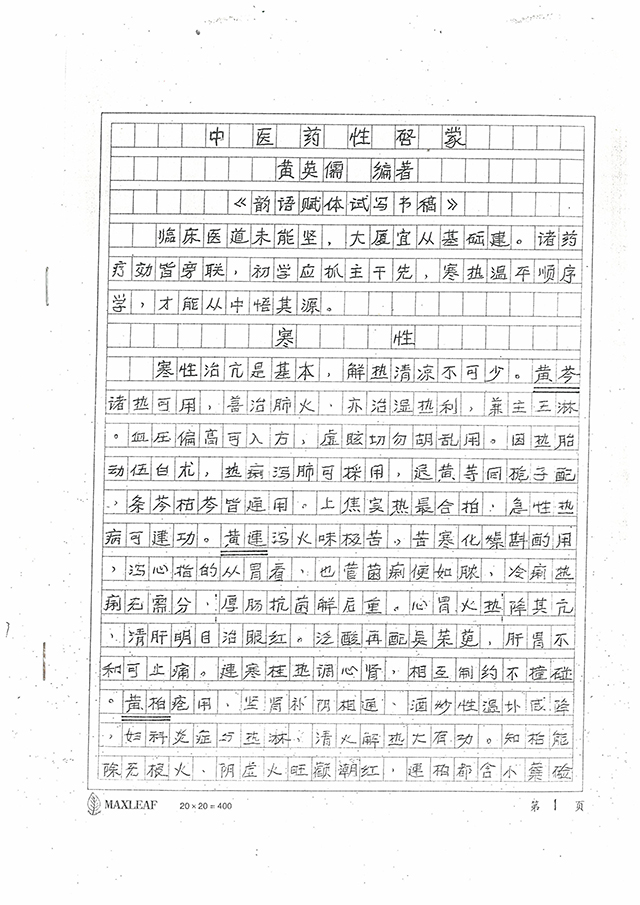 中医药性啓蒙
黄英儒 编著
《韵语赋体试写书稿》
临床医道未能坚，大厦宜从基础建。诸药
疗効皆旁联，初学应抓主干先，寒热温平顺序
学，才能从中悟其源。
寒 性
寒性治亢是基本，解热清凉不可少。黄芩
诸热可用，善治肺火、亦治湿热利，兼主三淋
。血压偏高可入方，虚眩切勿胡乱用。因热胎
动伍白术，热痢泻肺可採用，退黄等同栀子配
，条芩枯芩皆运用。上焦实热最合拍，急性热
病可建功。黄連泻火味极苦，苦寒化燥斟酌用
，泻心指的从胃看，也菅菌痢便如脓，冷痢热
痢无需分，厚肠抗菌解后重。心胃火热降其亢
，清肝明目治眼红。泛酸再配吴茱萸，肝胃不
和可止痛。連寒桂热调心肾，相互制约不撞碰
。黄柏疮用，坚肾补阴相通、酒炒性温
，妇科炎症与热淋、清火解热大有功。知柏能
除无梗火、阴虚火旺颧潮红，連柏都含小蘗硷
MAXLEAF 20×20=400 第 1 页